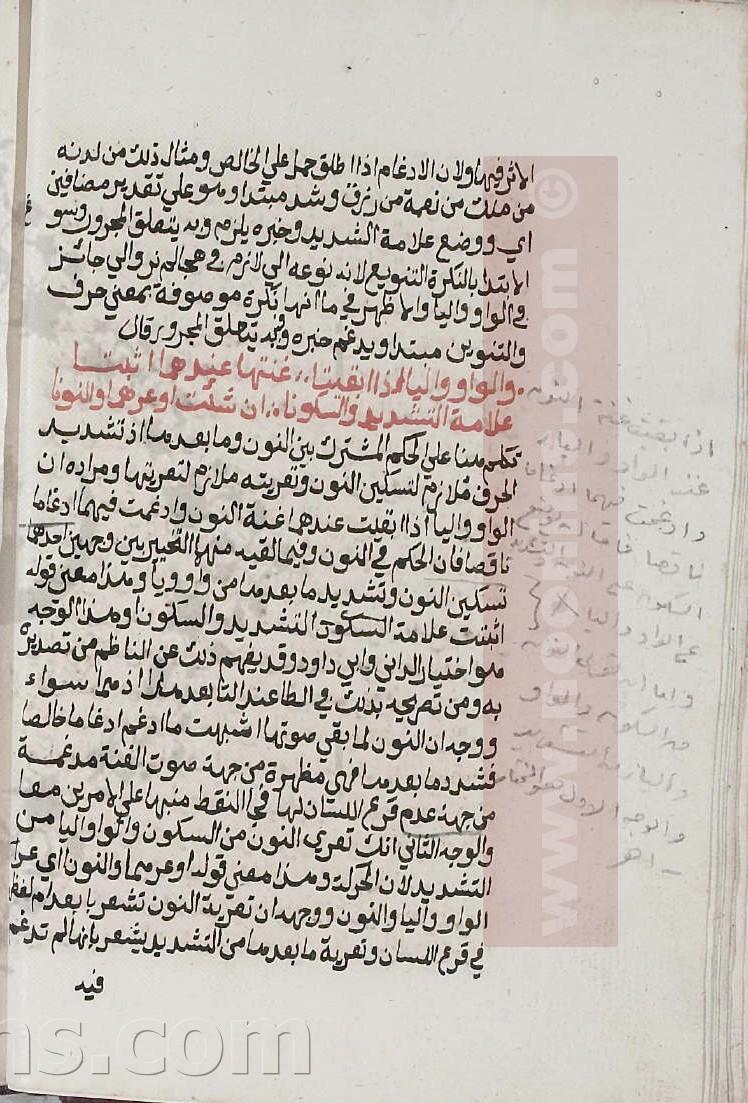 الاثر فيها ولان الادغام اذا اطلق حمل علي الخالص ومثال ذلك من لدنه
من ملك من نعمة من رزق وشد مبتدا وهو علي تقدير مضافين
اي ووضع علامة الشديد وخبره يلزم وبه يتعلق المجرور وسو
الابتدا بالنكرة التنويع لانه نوعه الي لازم في هجا لم نر والي جائز
في الواو واليا والاظهر في ما انها نكرة موصوفة بمعني حرف
والتنوين مبتدا ويدغم خبره وفيه يتعلق المجرور قال
والواو واليا اذا ابقيتا غنتها عندهما اثبتا
علامة التشديد والسكونا ان شئت او عرهما والنونا
تكلم هنا علي الحكم المشترك بين النون وما بعدها اذ تشديد
الحرف ملازم لتسكين النون وتعريته ملازم لتعريتها ومراده ان
الواو واليا اذا ابقيت عندهما غنة النون وادغمت فيهما ادغاما
ناقصا فان الحكم في النون وفيما لقيه منهما التخيير بين وجهين احدهما
تسكين النون وتشديد ما بعدها من واو ويا وهذا معني قوله
اثبتت علامة السكون التشديد والسكون وهذا الوجه
هو اختيار الداني وابي داود وقد يفهم ذلك عن الناظم من تصديره
به ومن تصريحه بذلك في الطا عند التا بعد هذا اذ هما سواء
ووجه ان النون لما بقي صوتها اشبهت ما ادغم ادغاما خالصا
فشدد ما بعدها فهي مظهرة من جهة صوت الغنة مدغمة
من جهة عدم قرع اللسان لها ففي النقط منبها علي الامرين معا
والوجه الثاني انك تعري النون من السكون والواو واليا من
التشديد لان الحركة وهذا معني قوله او عرهما والنون اي عرا
الواو واليا والنون ووجهه ان تعرية النون تشعر با بعدم لفظ
في قرع اللسان وتعرية ما بعدها من التشديد يشعر بانها لم تدغم
فيه
اذا بقيت غنة النون
عند الواو والياء
وادغمت فيهما ادغاما
ناقصا
السكون على النون والتشديد
على الواو والياء
والوجه الاول هو المختار
اهـ
www.noonme.com ©
ns.com